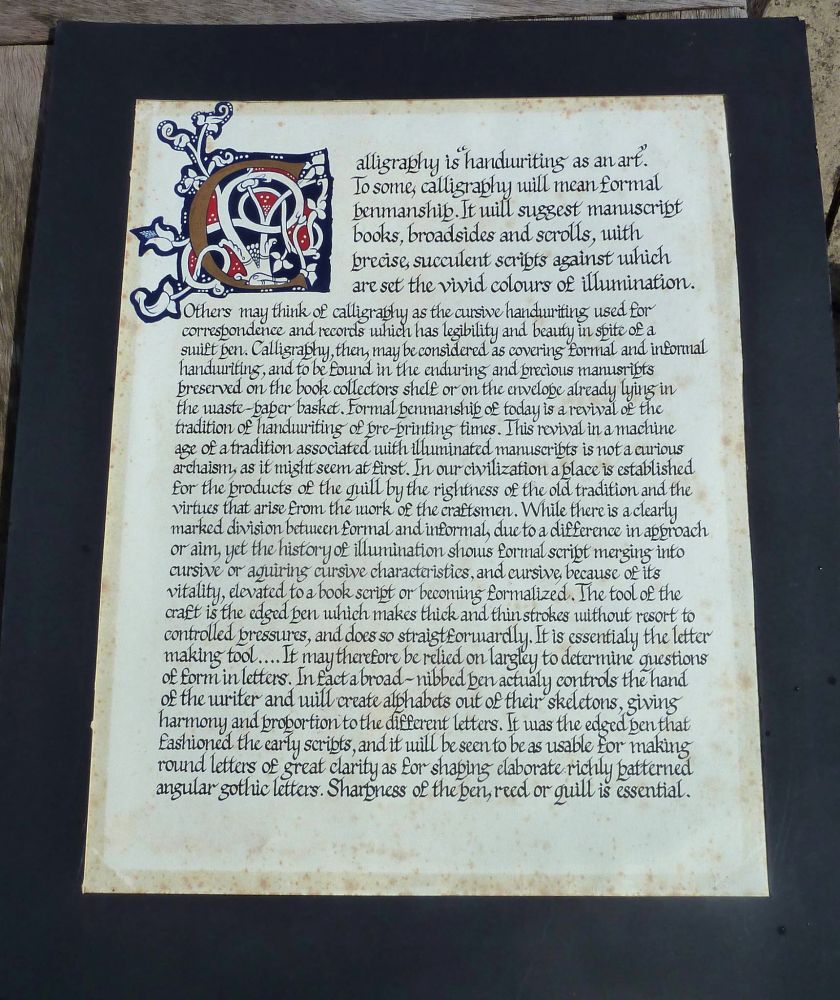 Calligraphy is "handwriting as an art".
To some, calligraphy will mean formal
penmanship. It will suggest manuscript
books, broadsides and scrolls, with
precise, succulent scripts against which
are set the vivid colours of illumination.
Others may think of calligraphy as the cursive handwriting used for
correspondence and records which has legibility and beauty in spite of a
swift pen. Calligraphy, then, may be considered as covering formal and informal
handwriting, and to be found in the enduring and precious manusripts
preserved on the book collectors shelf or on the envelope already lying in
the waste-paper basket. Formal penmanship of today is a revival of the
tradition of handwriting of pre-printing times. This revival in a machine
age of a tradition associated with illuminated manuscripts is not a curious
archaism, as it might seem at first. In our civilization a place is established
for the products of the quill by the rightness of the old tradition and the
virtues that arise from the work of the craftsmen. While there is a clearly
marked division between formal and informal, due to a difference in approach
or aim, yet the history of illumination shows formal script merging into
cursive or aquiring cursive characteristics, and cursive, because of its
vitality, elevated to a book script or becoming formalized. The tool of the
craft is the edged pen which makes thick and thin strokes without resort to
controlled pressures, and does so straigtforwardly. It is essentialy the letter
making tool.... It may therefore be relied on largley to determine questions
of form in letters. In fact a broad-nibbed pen actualy controls the hand
of the writer and will create alphabets out of their skeletons, giving
harmony and proportion to the different letters. It was the edged pen that
fashioned the early scripts, and it will be seen to be as usable for making
round letters of great clarity as for shaping elaborate richly patterned
angular gothic letters. Sharpness of the pen, reed or quill is essential.